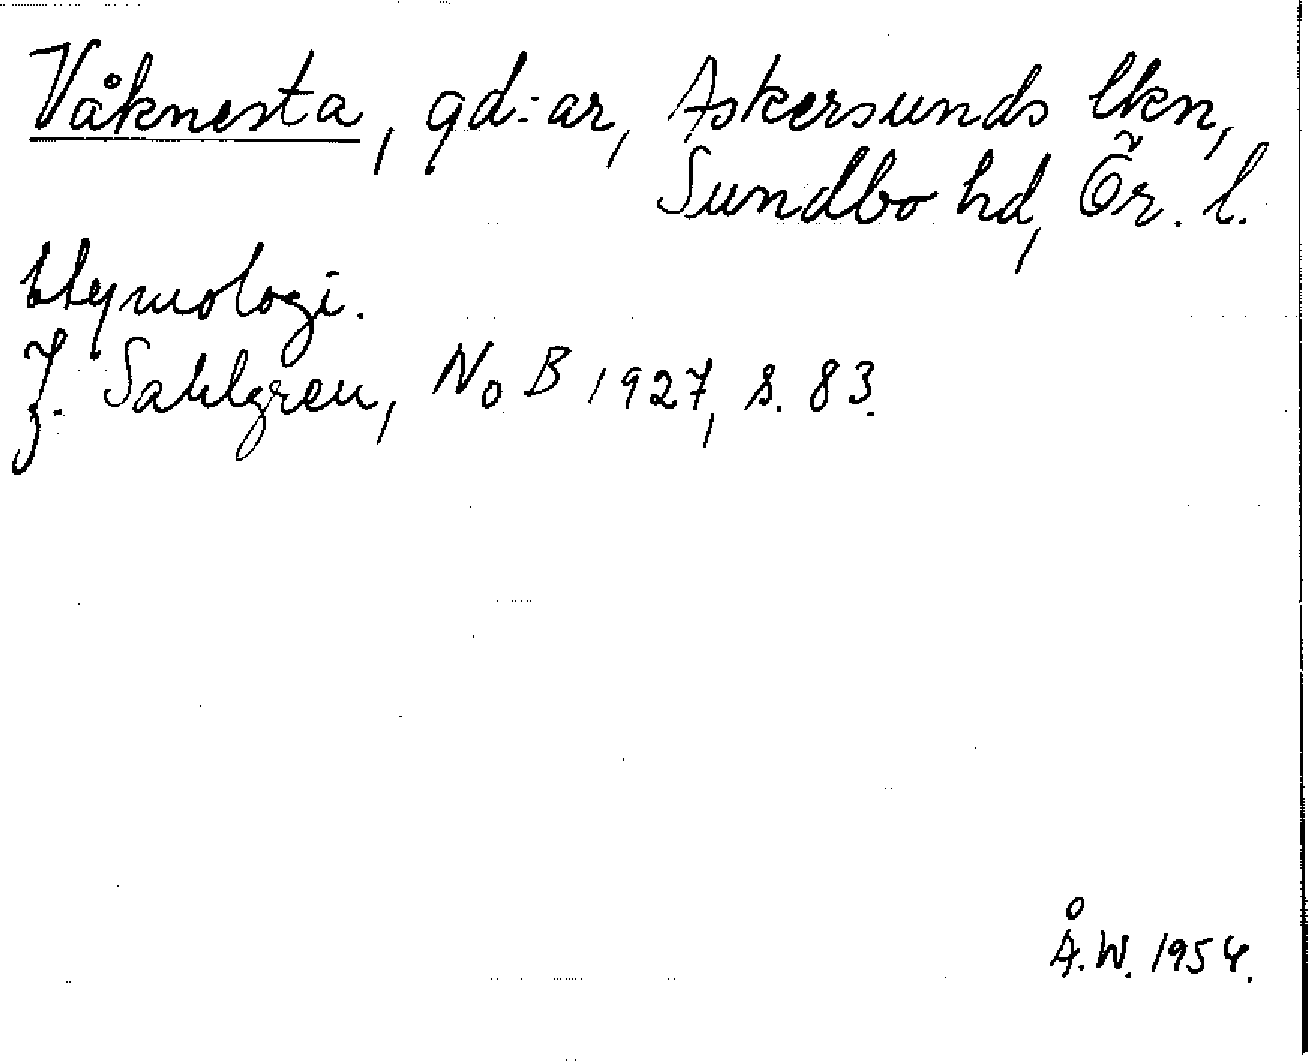 Våknesta, gd:ar, Askersunds lkn,
Sundbo hd, Ör. l.
Etymologi.
J. Sahlgren, NoB 1927, s. 83.
Å.W. 1954.